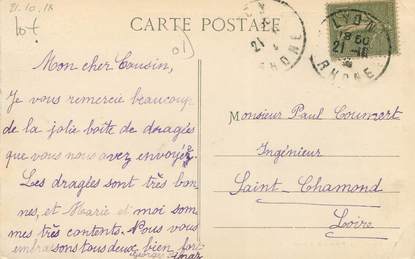 21.10.18
CARTE POSTALE
LYON
18 50
21 -10
RHONE
21
RHONE
Mon cher Cousin,
Je vous remercie beaucoup
de la jolie boîte de dragées
que vous nous avez envoyée.
Les dragées sont très bon-
nes, et Marie et moi som
mes très contents. Nous vous
embrassons tous deux bien fort
Monsieur Paul
Ingénieur
Saint-Chamond
Loire